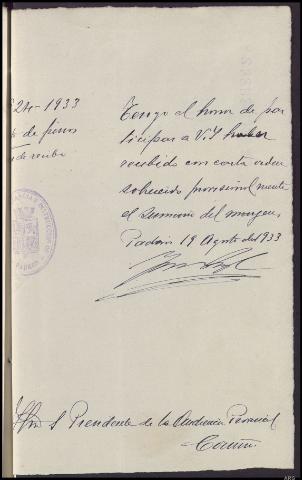 24-1933
de pinos
de recibo
Tengo el honor de par
ticipar a V.I. haber
recibido con carta orden
sobreseido provisionalmente
el sumario del margen.
Padrón 19 Agosto de 1933
Sr Presidente de la Audiencia Provincial
Coruña